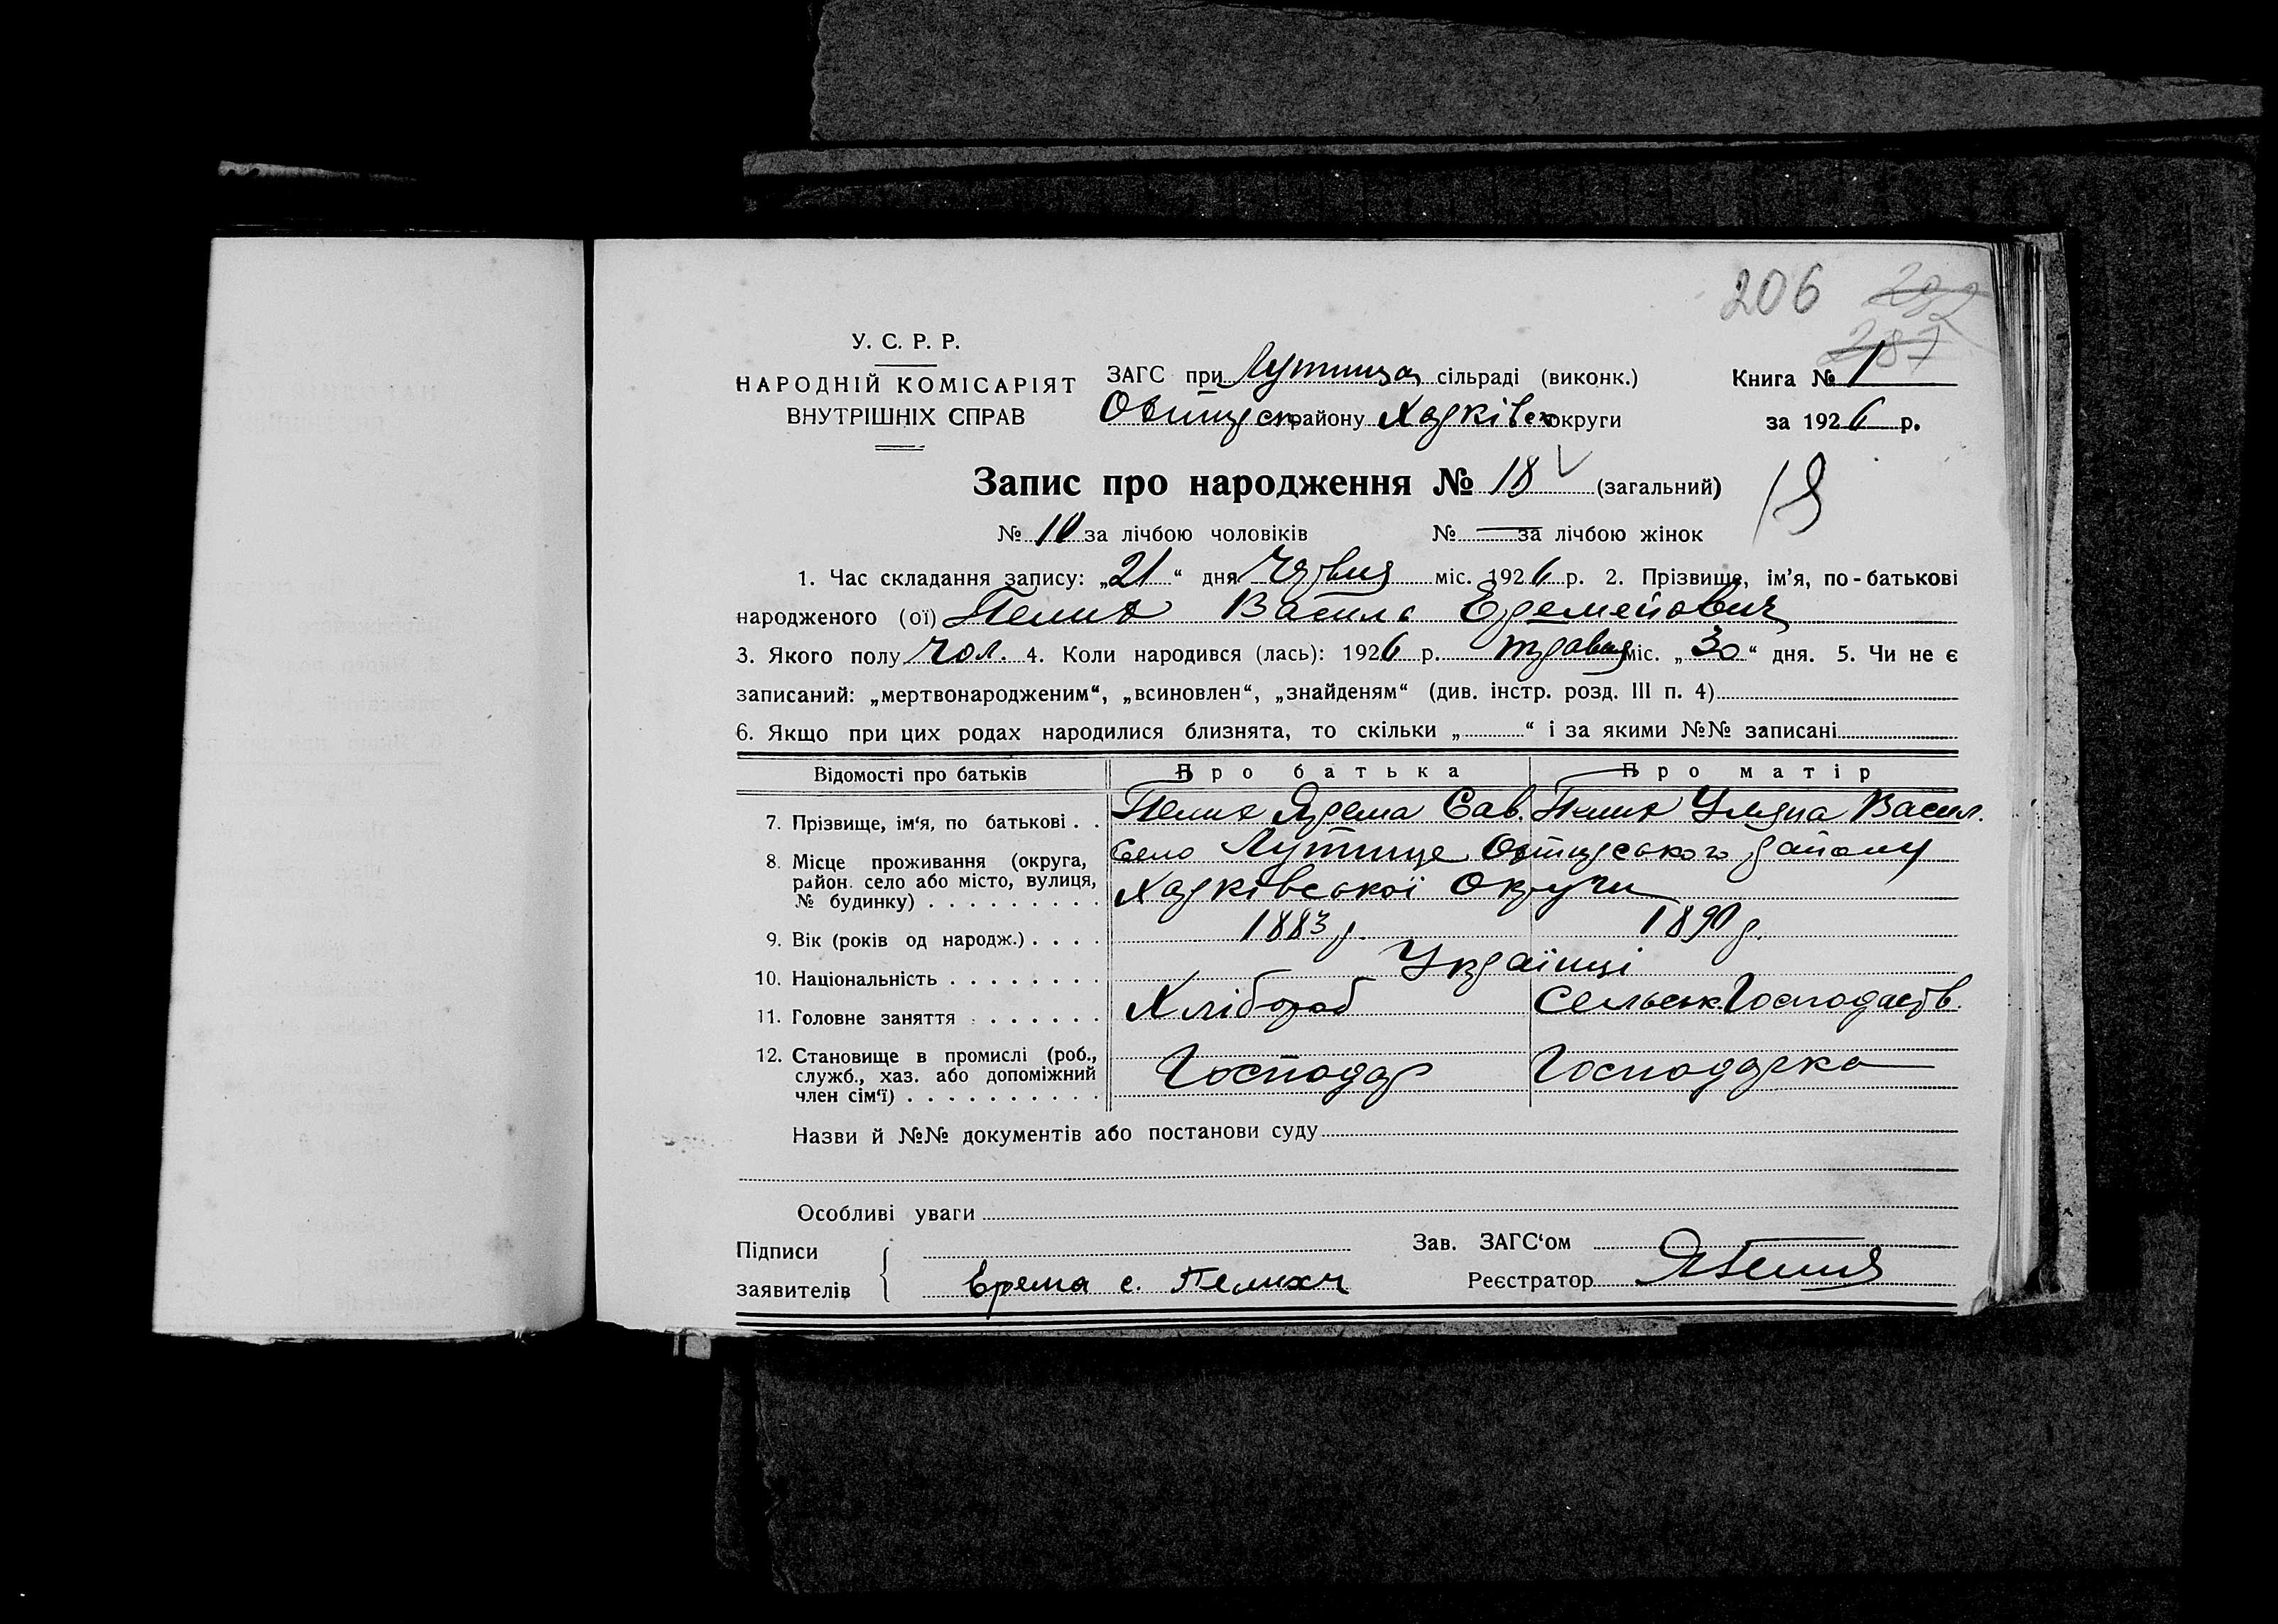 206 292
287
У. С. Р. Р.
НАРОДНІЙ КОМІСАРІЯТ
ВНУТРІШНІХ СПРАВ
ЗАГС при Лутищан сільраді (виконк.)
району Харківськ округи
Книга № 1
за 1926 р.
Запис про народження № 18 (загальний) 18
№ 10 за лічбою чоловіків № — за лічбою жінок
1. Час складання запису: „21“ дня Червня міс. 1926 р. 2. Прізвище, ім'я, по-батькові
народженого (ої) Пелих Василь Еремейович
3. Якого полу чол. 4. Коли народився (лась): 1926 р. травня міс. „30“ дня. 5. Чи не є
записаний: „мертвонародженим“, „всиновлен“, „знайденям“ (див. інстр. розд. III п. 4)
6. Якщо при цих родах народилися близнята, то скільки „ “ і за якими №№ записані
Відомості про батьків Про батька Про матір
7. Прізвище, ім'я, по батькові Пелих Ярема Сав. Пелих Уляна Васил.
8. Місце проживання (округа, район. село або місто, вулиця, № будинку) Село Лутище району
Харківської Округи
9. Вік (років од народж.) 1883 р. 1890 р.
10. Національність Українці
11. Головне заняття Хлібороб Сельськ. Господарств.
12. Становище в промислі (роб., служб., хаз. або допоміжний член сім'ї) Господар Господарка
Назви й №№ документів або постанови суду
Особливі уваги
Підписи
заявителів Ерема с. Пелихъ
Зав. ЗАГС'ом
Реєстратор